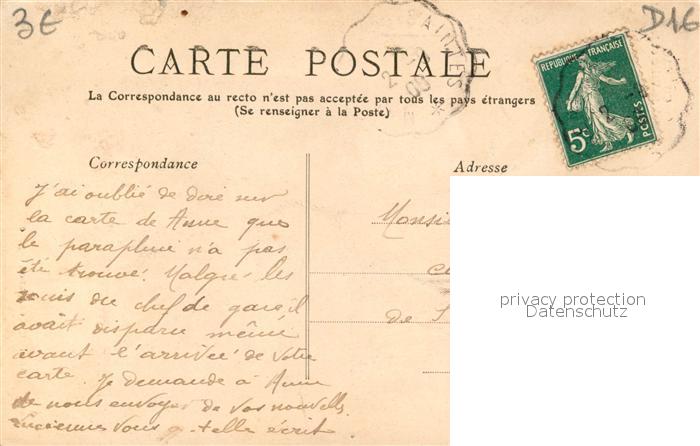 3€
D16
SAINTES
CARTE POSTALE
REPUBLIQUE FRANÇAISE
5c
POSTES
La Correspondance au recto n'est pas acceptée par tous les pays étrangers
(Se renseigner à la Poste)
Correspondance
Adresse
J'ai oublié de dire sur
la carte de Anne que
le parapluie n'a pas
été trouvé. Malgré les
du chef de gare, il
avait disparu même
avant l'arrivée de votre
carte. Je demande à Anne
de nous envoyer de vos nouvelles.
Lucienne vous a-t-elle écrit
Monsie
de S
privacy protection
Datenschutz